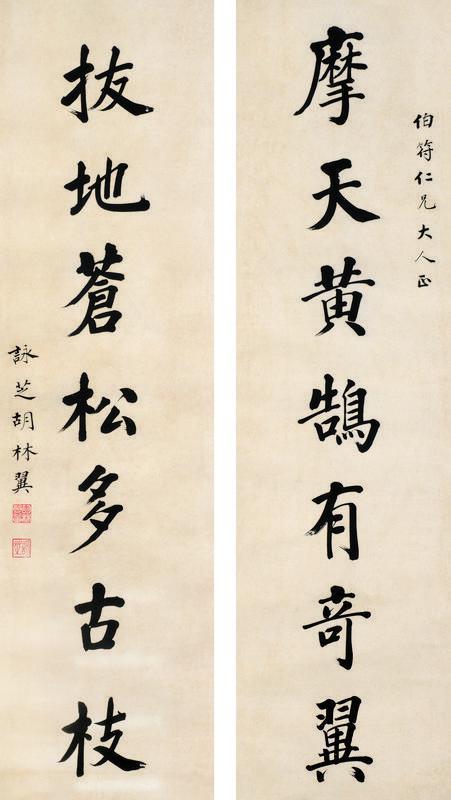 伯符仁兄大人正
摩天黄鵠有奇翼
拔地蒼松多古枝
詠芝胡林翼